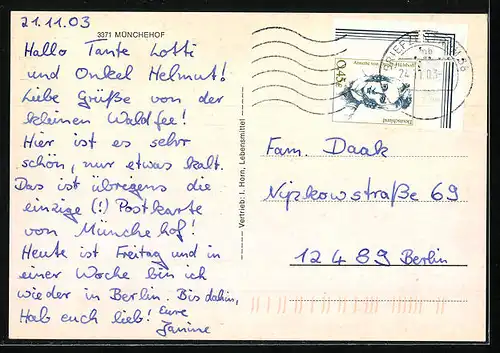 21.11.03
3371 MÜNCHEHOF
Hallo Tante Lotti
und Onkel Helmut!
Liebe Grüße von der
kleinen Waldfee!
Hier ist es sehr
schön, nur etwas kalt.
Das ist übrigens die
einzige (!) Postkarte
von Münchehof!
Heute ist Freitag und in
einer Woche bin ich
wieder in Berlin. Bis dahin,
Hab euch lieb! Eure
Janine
Vertrieb: I. Horn, Lebensmittel
0,45€
Deutschland
BRIEFZENTRUM
24.11.03
Fam. Daak
Nipkowstraße 69
12489 Berlin